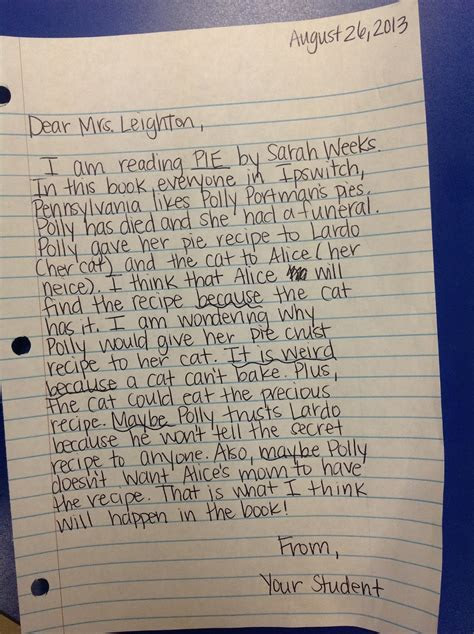 August 26, 2013
Dear Mrs. Leighton,
I am reading PIE by Sarah Weeks.
In this book, everyone in Ipswitch,
Pennsylvania likes Polly Portman's pies.
Polly has died and she had a funeral.
Polly gave her pie recipe to Lardo
(her cat) and the cat to Alice (her
neice). I think that Alice will
find the recipe because the cat
has it. I am wondering why
Polly would give her pie crust
recipe to her cat. It is weird
because a cat can't bake. Plus,
the cat could eat the precious
recipe. Maybe Polly trusts Lardo
because he won't tell the secret
recipe to anyone. Also, maybe Polly
doesn't want Alice's mom to have
the recipe. That is what I think
will happen in the book!
From,
Your Student